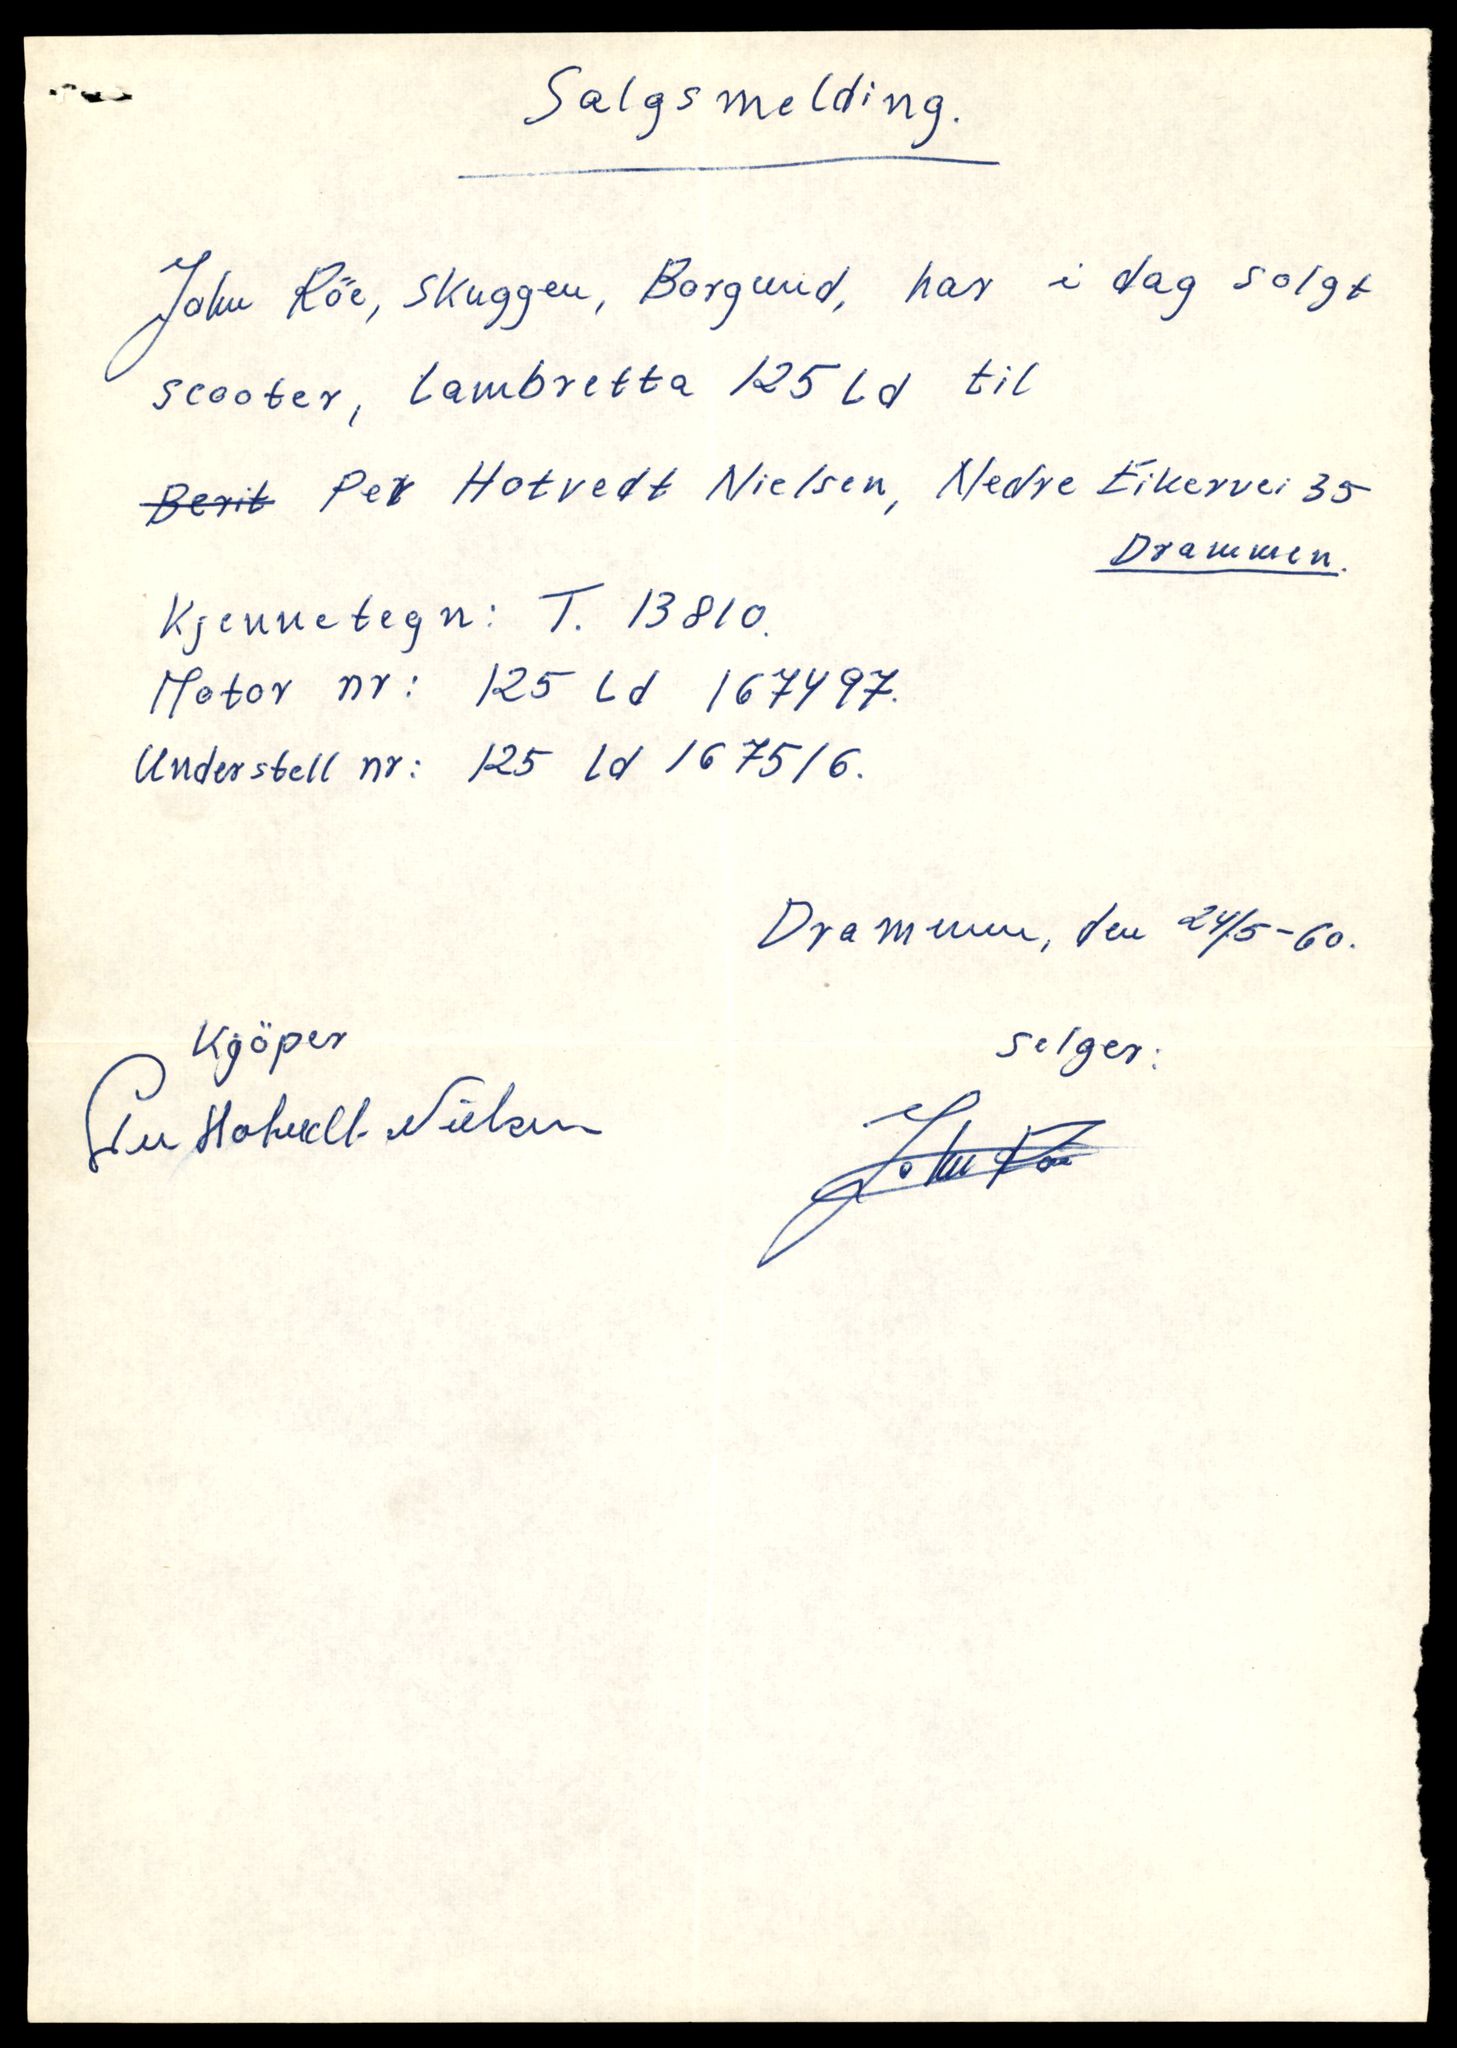 Salgsmelding.
John Röe, Skuggen, Borgund, har i dag solgt
scooter, Lambretta 125 Ld til
Berit Per Hotvedt Nielsen, Nedre Eikervei 35
Drammen.
Kjennetegn: T. 13810.
Motor nr: 125 Ld 167497.
Understell nr: 125 Ld 167516.
Drammen, den 24/5-60.
Kjöper
selger:
Per Hotvedt Nielsen
John Röe